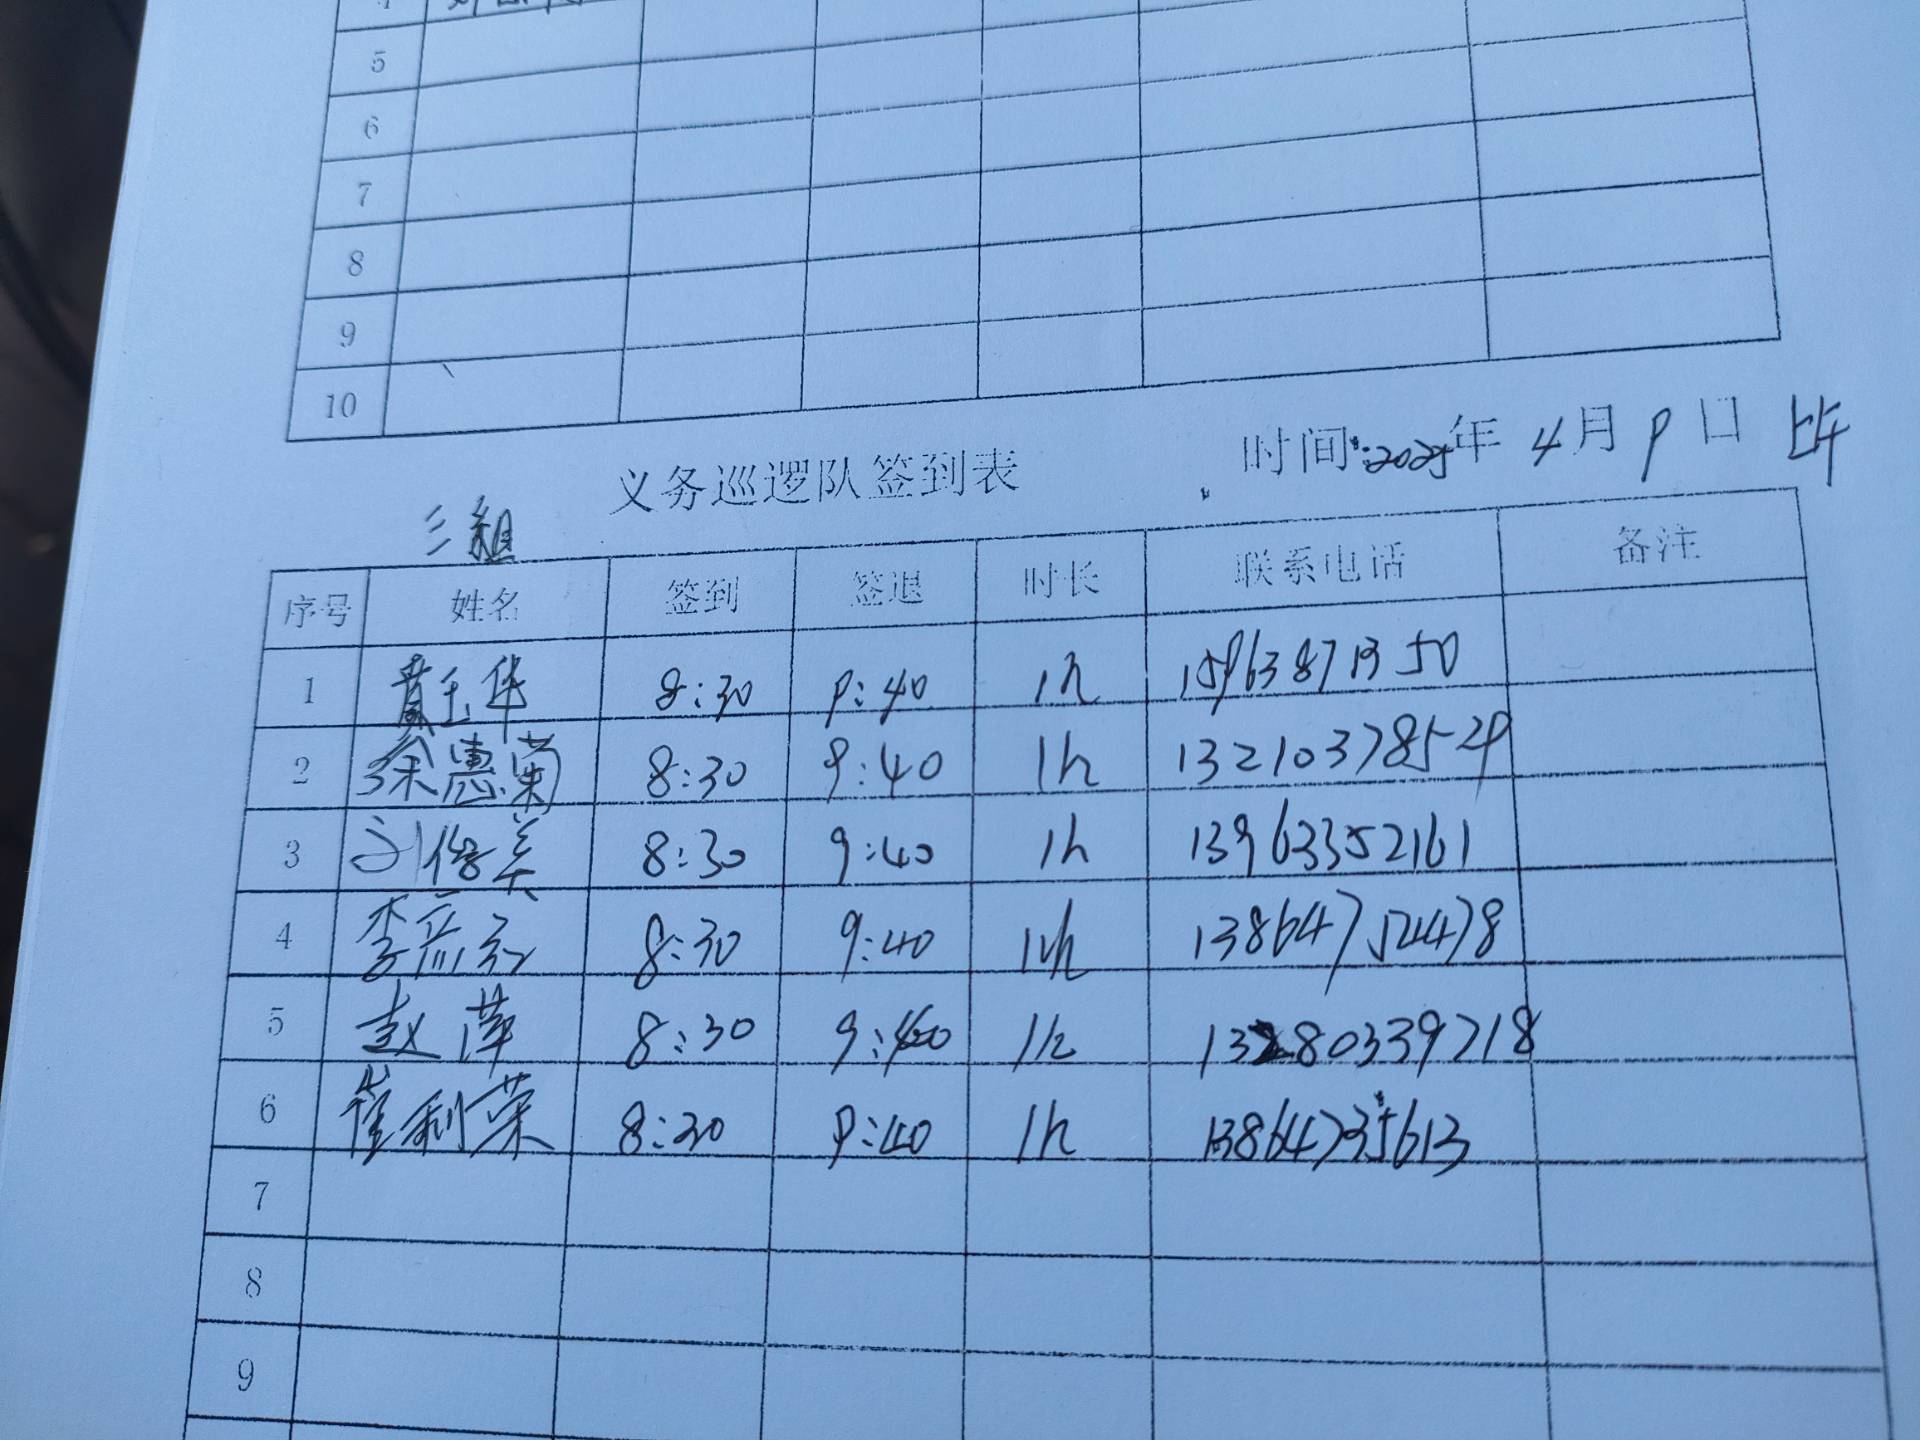 5
6
7
8
9
10
义务巡逻队签到表 时间:2025年 4月 9日 上午
三组
序号 姓名 签到 签退 时长 联系电话 备注
1 黄玉华 8:30 9:40 1h 15963871350
2 徐惠菊 8:30 9:40 1h 13210378524
3 刘俊美 8:30 9:40 1h 13963352161
4 李 8:30 9:40 1h 13864754478
5 赵萍 8:30 9:40 1h 13280339718
6 崔利荣 8:30 9:40 1h 13864735613
7
8
9